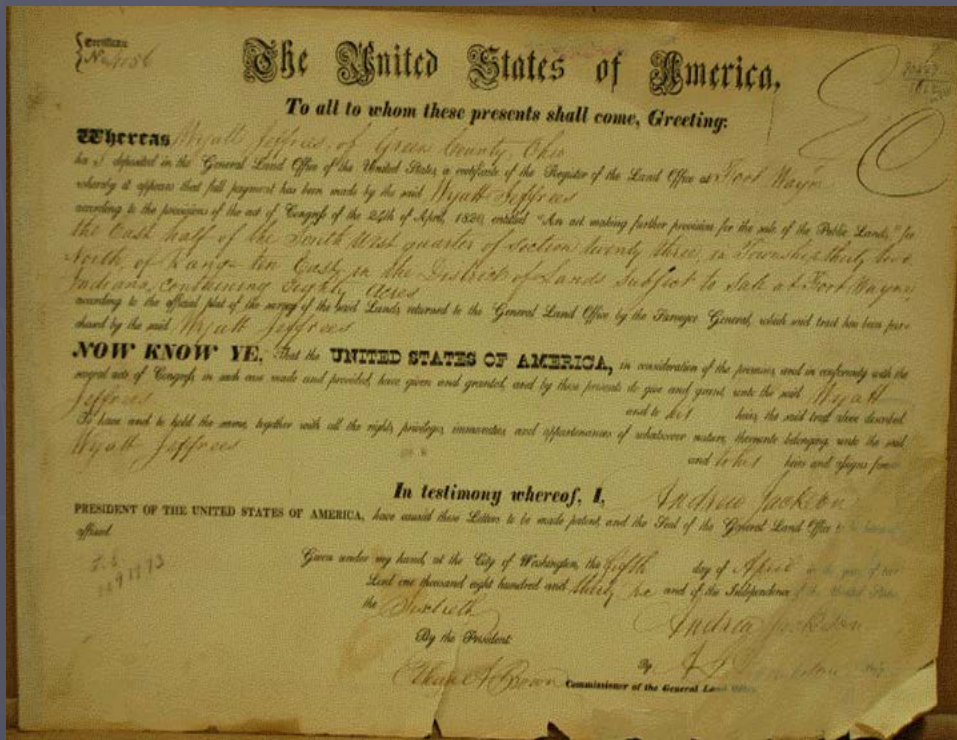 Certificate
No. 4056
The United States of America,
To all to whom these presents shall come, Greeting:
Whereas Wyatt Jeffrees, of Green County, Ohio
ha s deposited in the General Land Office of the United States, a certificate of the Register of the Land Office at Fort Wayne
whereby it appears that full payment has been made by the said Wyatt Jeffrees
according to the provisions of the act of Congress of the 24th of April, 1820, entitled "An act making further provision for the sale of the Public Lands," for
the East half of the South West quarter of Section twenty three, in Township thirty two
North, of Range ten East, in the District of Lands subject to Sale at Fort Wayne,
Indiana, containing eighty Acres
according to the official plat of the survey of the said Lands, returned to the General Land Office by the Surveyor General, which said tract has been pur-
chased by the said Wyatt Jeffrees
NOW KNOW YE, That the UNITED STATES OF AMERICA, in consideration of the premises, and in conformity with the
several acts of Congress, in such case made and provided, have given and granted, and by these presents do give and grant, unto the said Wyatt
Jeffrees and to his heirs, the said tract above described
To have and to hold the same, together with all the rights, privileges, immunities, and appurtenances of whatsoever nature, thereunto belonging, unto the said
Wyatt Jeffrees and to his heirs and assigns forever
In testimony whereof, I, Andrew Jackson
PRESIDENT OF THE UNITED STATES OF AMERICA, have caused these Letters to be made patent, and the Seal of the General Land Office to be hereunto
affixed.
Given under my hand, at the City of Washington, the fifth day of April in the year of our
Lord one thousand eight hundred and thirty six and of the Independence of the United States
the Sixtieth
Andrew Jackson
By the President
By
Commissioner of the General Land Office
Ethan A Brown